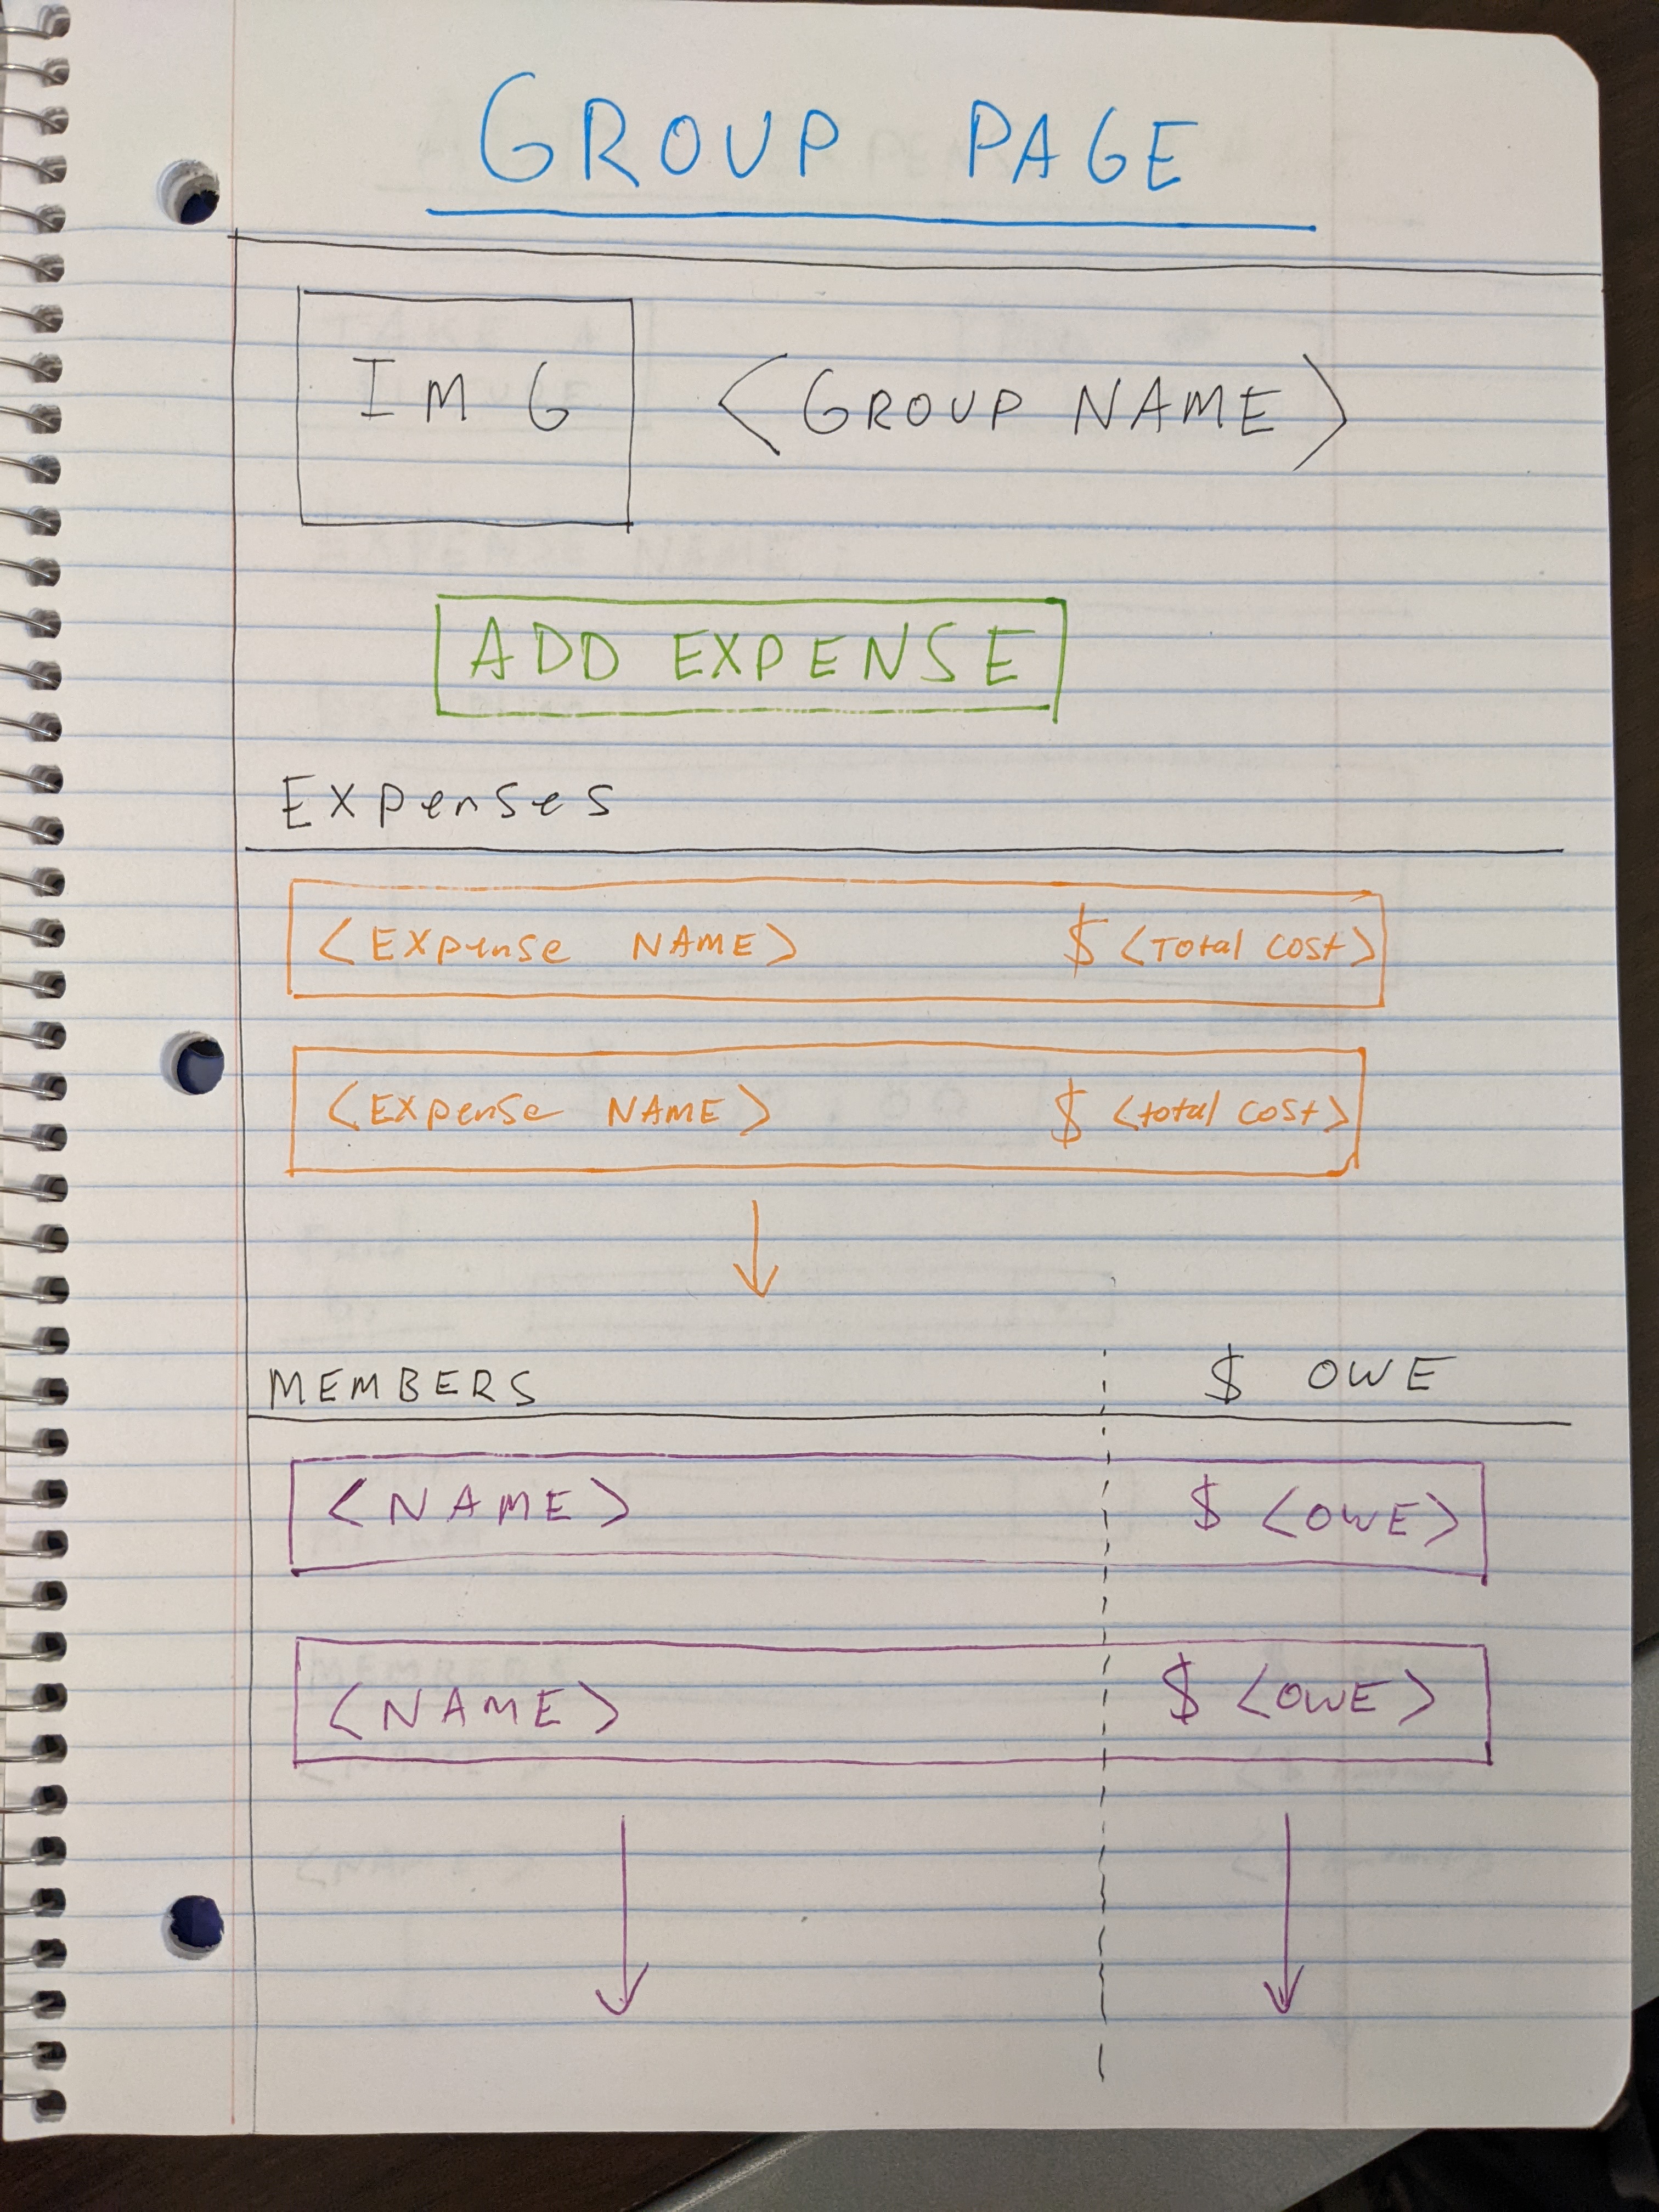 GROUP PAGE
IMG <GROUP NAME>
ADD EXPENSE
Expenses
<Expense NAME> $ <Total cost>
<Expense NAME> $ <total cost>
MEMBERS $ OWE
<NAME> $ <OWE>
<NAME> $ <OWE>